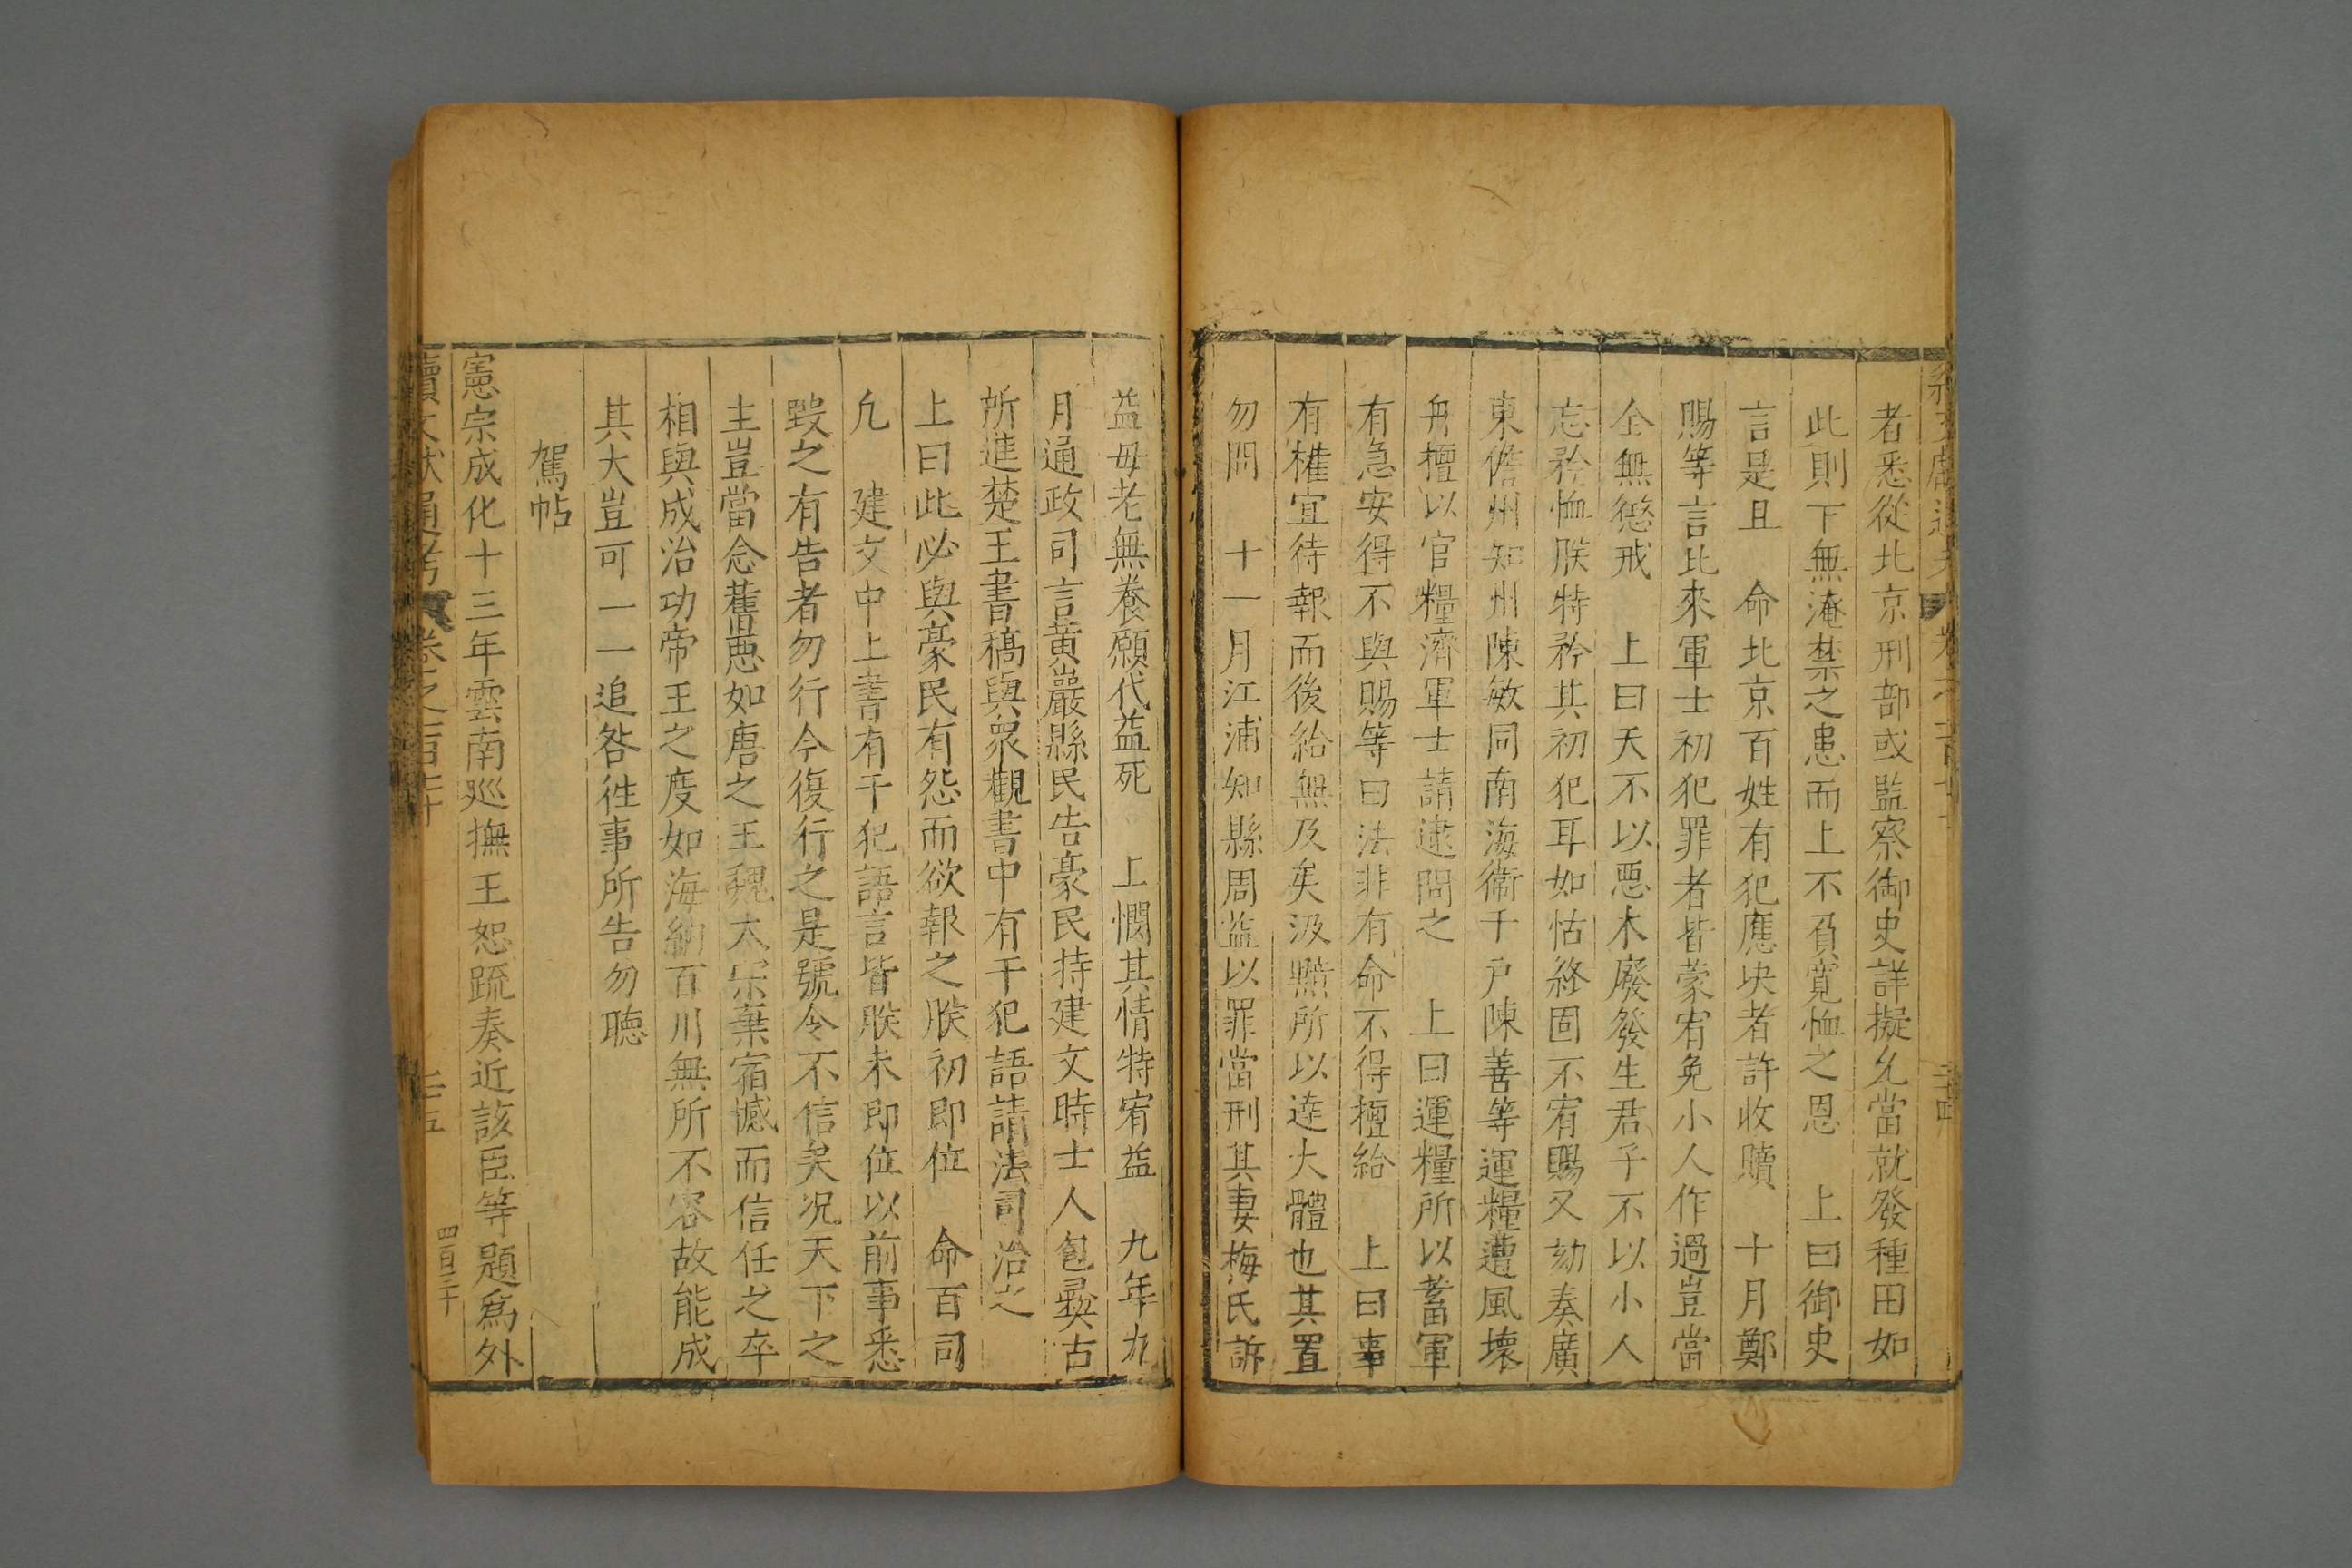 者悉從北京刑部或監察御史詳擬允當就發種田如
此則下無淹禁之患而上不負寬恤之恩　上曰御史
言是且　命北京百姓有犯應决者許收贖　十月鄭
賜等言比來軍士初犯罪者皆蒙宥免小人作過豈當
全無懲戒　上曰天不以惡木廢發生君子不以小人
忘矜恤朕特矜其初犯耳如怙終固不宥賜又劾奏廣
東儋州知州陳敏同南海衛千户陳善等運糧遭風壞
舟擅以官糧濟軍士請逮問之　上曰運糧所以蓄軍
有急安得不與賜等曰法非有命不得擅給　上曰事
有權宜待報而後給無及矣汲黯所以逹大體也其置
勿問　十一月江浦知縣周益以罪當刑其妻梅氏訴
益母老無養願代益死　上憫其情特宥益　九年九
月通政司言黄巖縣民告豪民持建文時士人包彛古
所進楚王書稿與衆觀書中有干犯語請法司治之
上曰此必與豪民有怨而欲報之朕初即位　命百司
凢　建文中上書有干犯語言皆朕未即位以前事悉
毀之有告者勿行今復行之是號令不信矣况天下之
主豈當念舊惡如唐之王魏太宗棄宿憾而信任之卒
相與成治功帝王之度如海納百川無所不容故能成
其大豈可一一追咎徃事所告勿聴
駕帖
憲宗成化十三年雲南廵撫王恕疏奏近該臣等題爲外
續文献通考　卷之一百七十　二十五　四百三十